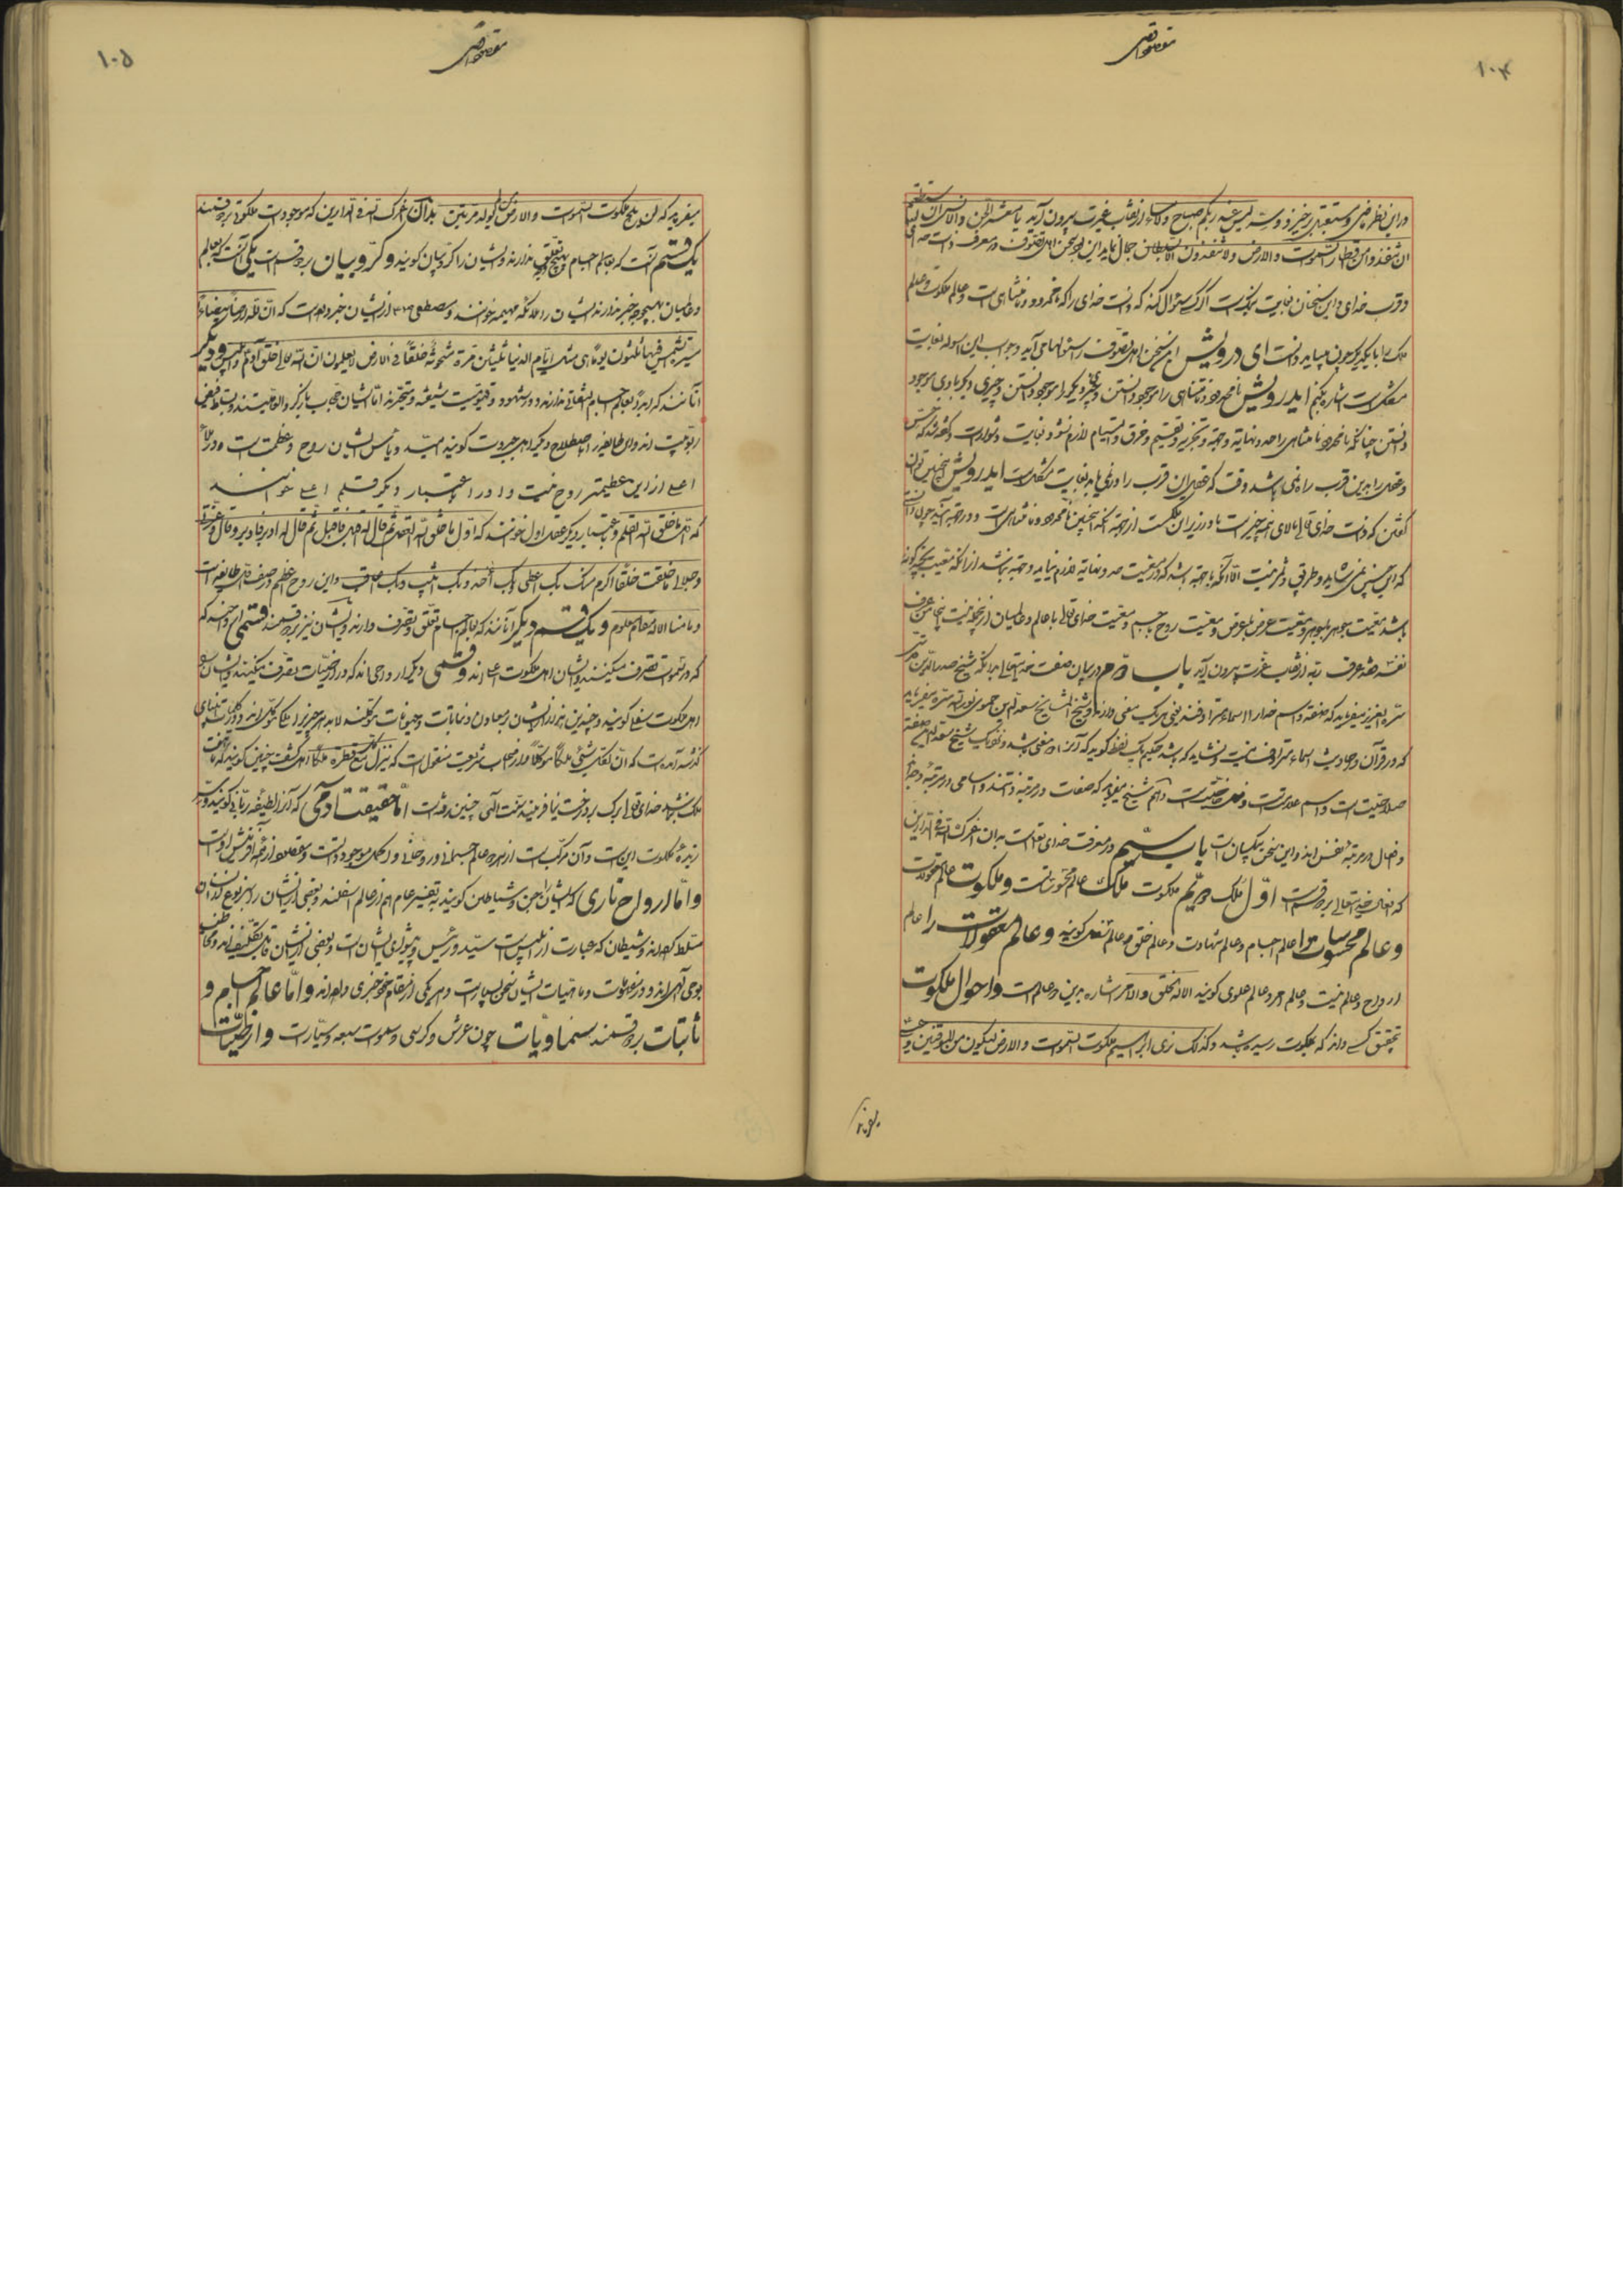 مقصد اقصی
۱۰۴
در این نظر ماضی و مستقبل برخیزد و سر لیس عند ربکم صباح ولا مساء از نقاب عزت بیرون آید یا معشر الجن والانس ان استطعتم
ان تنفذوا من اقطار السموات والارض ولا تنفذون الا بسلطان جمال نماید این بود سخن اهل تصوف در معرفت ذات خدای
و قرب خدای و این سخنان بغایت نیکوست اگر کسی سؤال کند که ذات خدای را که نامحدود و نامتناهی است و عالم ملکوت و عالم
ملک را با یکدیگر چون میباید دانست ای درویش این سخن اهل تصوف را سئوالها می آید و جواب این اسوله بغایت
مشکل است اشاره بکنم ای درویش نامحدود و نامتناهی را موجود دانستن و چیز دیگر را موجود دانستن و چیزی دیگر با وی موجود
دانستن چنانکه نامحدود نامتناهی را حد و نهایة و جهة و تجزیه و تقسیم و خرق و التیام لازم نشود بغایت دشوار است و گفته شد که حس
و عقل را بدین قرب راه نمی باشد وقت که عقل این قرب را در نمی یابد بغایت مشکل است ای درویش همچنین توان
گفتن که ذات خدای تعالی بالای همه چیز است یا در زیر آن ملکست از جهة آنکه اینچنین نامحدود و نامتناهی است و در جهة آید چون دانست
که این چنین نمی شاید و طریق دیگر نیست الا آنکه با همه باشد که در معیت حد و نهایة لازم نیاید و جهة نباشد از آنکه معیت بچند گونه
باشد معیت جوهر با جوهر و معیت عرض با عرض و معیت روح با جسم و معیت خدای تعالی با عالم و عالمیان از این جمله نیست اینجا من عرف
نفسه فقد عرف ربه از نقاب عزت بیرون آید باب دوم در بیان صفت خدایتعالی بدانکه شیخ صدرالدین قدس
سره العزیز میفرماید که صفة و اسم خدا را اسماء مترادفند یعنی هر یک معنی دارند و شیخ المشایخ سعدالدین حموی نور الله سره میفرماید
که در قرآن و احادیث اسماء مترادف نیست و نشاید که باشد حکیم یک لفظ گوید که آن را دو معنی باشد و نزدیک شیخ سعدالدین صفة
صلاحیت است و اسم علامتست و فعل خاصیت است و هم شیخ میفرماید که صفات در مرتبة ذاتند و اسامی در مرتبة وجه
و افعال در مرتبة نفس اند و این سخن نیکو بیان است باب سیم در معرفت خدای تعالی است بدان اعزک الله فی الدارین
که افعال خدایتعالی بر دو قسم است اول ملک دویم ملکوت ملک عالم محسوساتست و ملکوت عالم معقولات
و عالم محسوسات را عالم اجسام و عالم شهادت و عالم خلق و عالم سفلی گویند و عالم معقولات را عالم
ارواح و عالم غیب و عالم امر و عالم علوی گویند الا له الخلق والامر اشاره بدین دو عالم است و احوال ملکوت
بتحقیق کسی داند که بملکوت رسیده باشد و کذلک نری ابراهیم ملکوت السموات والارض لیکون من الموقنین و عیسی
میفرماید
مقصد اقصی
۱۰۵
میفرماید که لن یلج ملکوت السموات والارض من لم یولد مرتین بدان اعزک الله فی الدارین که موجودات ملکوت بر دو قسمند
یک قسم آنست که بعالم اجسام هیچ تعلق ندارند و ایشان را کروبیان گویند و کروبیان بر دو قسم است یکی آنست که بعالم
و عالمیان بهیچوجه خبر ندارند ایشان را ملائکه مهیمه خوانند و مصطفی از ایشان خبر داده است که ان لله ارضا بیضاء
مسیرة الشمس فیها ثلثون یوما هی مثل ایام الدنیا ثلثین مرة مشحونة خلقا فی الارض لا یعلمون ان الله تعالی خلق آدم و ابلیس و دیگر
آنانند که اگرچه بعالم اجسام التفاتی ندارند و در شهود قیومیت شیفته و متحیرند اما ایشان حجاب بارگاه الوهیتند و وسایط فیض
ربوبیت اند و این طایفه را باصطلاح دیگر اهل جبروت گویند سید و رئیس ایشان روح اعظمست و در ملاء
اعلی از این عظیمتر روح نیست و او را باعتبار دیگر قلم اعلی خوانند
که اول ما خلق الله القلم و باعتبار دیگر عقل اول خوانند که اول ما خلق الله العقل ثم قال له اقبل فاقبل ثم قال له ادبر فادبر و قال و عزتی
و جلالی ما خلقت خلقا اکرم منک بک اعطی و بک آخذ و بک اثیب و بک اعاقب و این روح اعظم در صف اول این طایفه است
و ما منا الا له مقام معلوم و یک قسم دیگر آنانند که بعالم اجسام تعلق و تصرف دارند و ایشان نیز بر دو قسمند قسمی ارواحند که
که در سموات تصرف میکنند و ایشان اهل ملکوت اعلی اند و قسمی دیگر ارواحی اند که در ارضیات تصرف میکنند و ایشان را
اهل ملکوت سفلی گویند و چندین هزار از ایشان بر معادن و نباتات و حیوانات موکلند لابد هر چیز را ملکی موکل اند و در کلمات انبیای
گذشته آمده است که ان لکل شیئ ملکا موکلا و از صاحب شریعت منقول است که ینزل مع کل قطرة ملک و اهل کشف چنین گویند که تا هفت
ملک نباشد خدای تعالی برگ بر درخت نیافریند سنت الهی چنین رفته است اما حقیقت آدمی که آنرا لطیفه ربانی گویند و بس
زبده ملکوت این است و آن مرکب است از هر دو عالم جسمانی و روحانی و اکمل موجودات و مقصود از همه آفرینش اوست
و اما ارواح ناری که ایشان را جن و شیاطین گویند به تفسیر عام هم از عالم اسفلند و بعضی از ایشان را بر نوع انسان
مسلط کرده اند و شیطان که عبارت از ابلیس است سید و رئیس و پیشوای ایشان است و بعضی از ایشان قابل تکلیف اند و مخاطب
بوحی الهی اند و در نعوت و ماهیات ایشان سخن بسیار است و هر یکی از مقام خود خبری داده اند و اما عالم اجسام و
ثابتات بر دو قسمند سماویات چون عرش و کرسی و سموات سبعه و سیارات و ارضیات